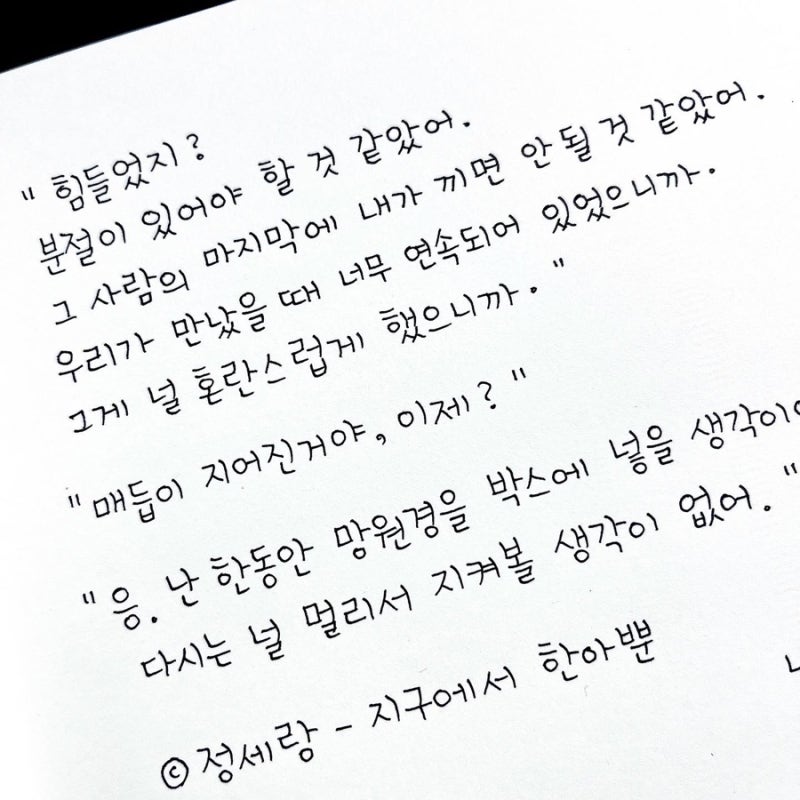 "힘들었지?
분절이 있어야 할 것 같았어.
그 사람의 마지막에 내가 끼면 안 될 것 같았어.
우리가 만났을 때 너무 연속되어 있었으니까.
그게 널 혼란스럽게 했으니까."
"매듭이 지어진거야, 이제?"
"응. 난 한동안 망원경을 박스에 넣을 생각이
다시는 널 멀리서 지켜볼 생각이 없어."
©정세랑 - 지구에서 한아뿐